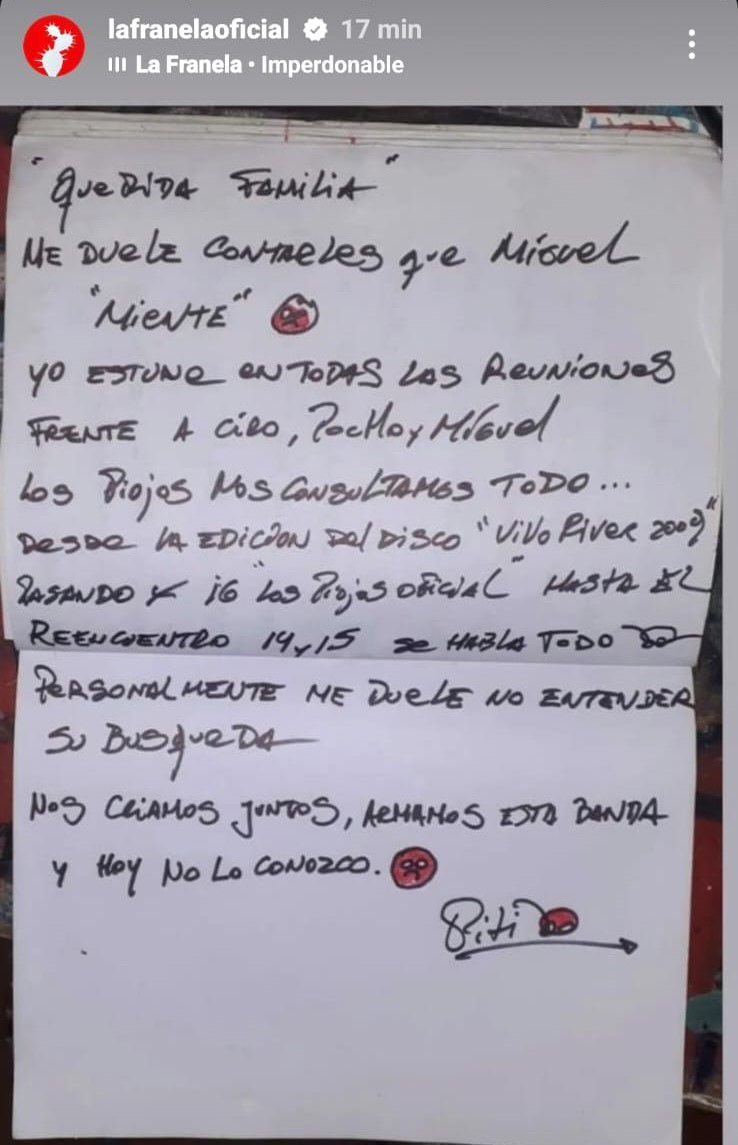 lafranelaoficial 17 min
La Franela • Imperdonable
"Querida Familia"
Me duele contarles que Miguel
"Miente"
Yo estuve en todas las reuniones
frente a Ciro, Pocho y Miguel
Los Piojos nos consultamos todo...
Desde la edicion del disco "Vivo River 2009"
Pasando x iG "Los Piojos oficial" hasta el
Reencuentro 14 y 15 se habla todo
Personalmente me duele no entender
su busqueda
Nos criamos juntos, armamos esta banda
y hoy no lo conozco.
Piti